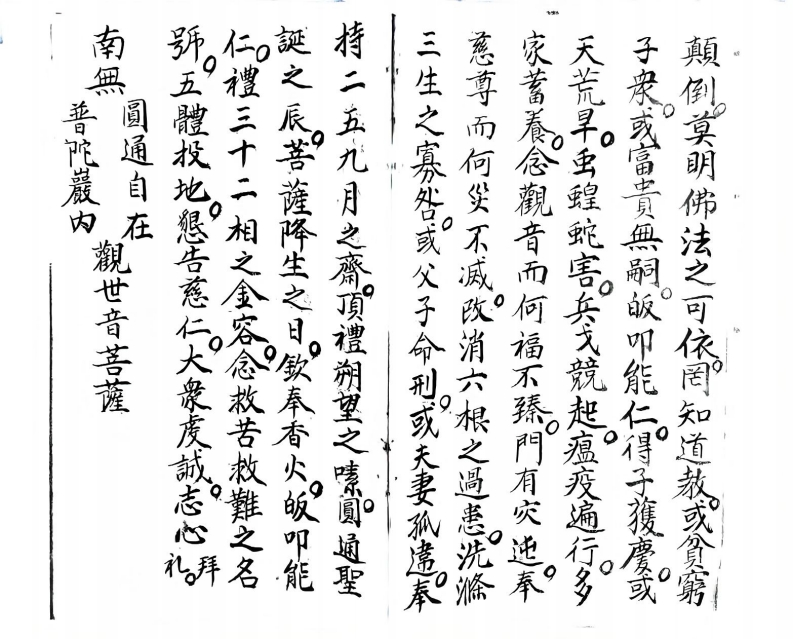 顛倒。莫明佛法之可依。罔知道教。或貧窮
子衆。或富貴無嗣。皈叩能仁。得子獲慶。或
天荒旱。虫蝗蛇害。兵戈競起。瘟疫遍行。多
家蓄養。念觀音而何福不臻。門有灾迍。奉
慈尊而何災不滅。改消六根之過患。洗滌
三生之寡咎。或父子命刑。或夫妻孤違。奉
持二五九月之齋。頂禮朔望之嗉。圓通聖
誕之辰。菩薩降生之日。欽奉香火。皈叩能
仁。禮三十二相之金容。念救苦救難之名
号。五體投地。懇告慈仁。大衆虔誠。志心拜礼。
南無
圓通自在
普陀巖内
觀世音菩薩